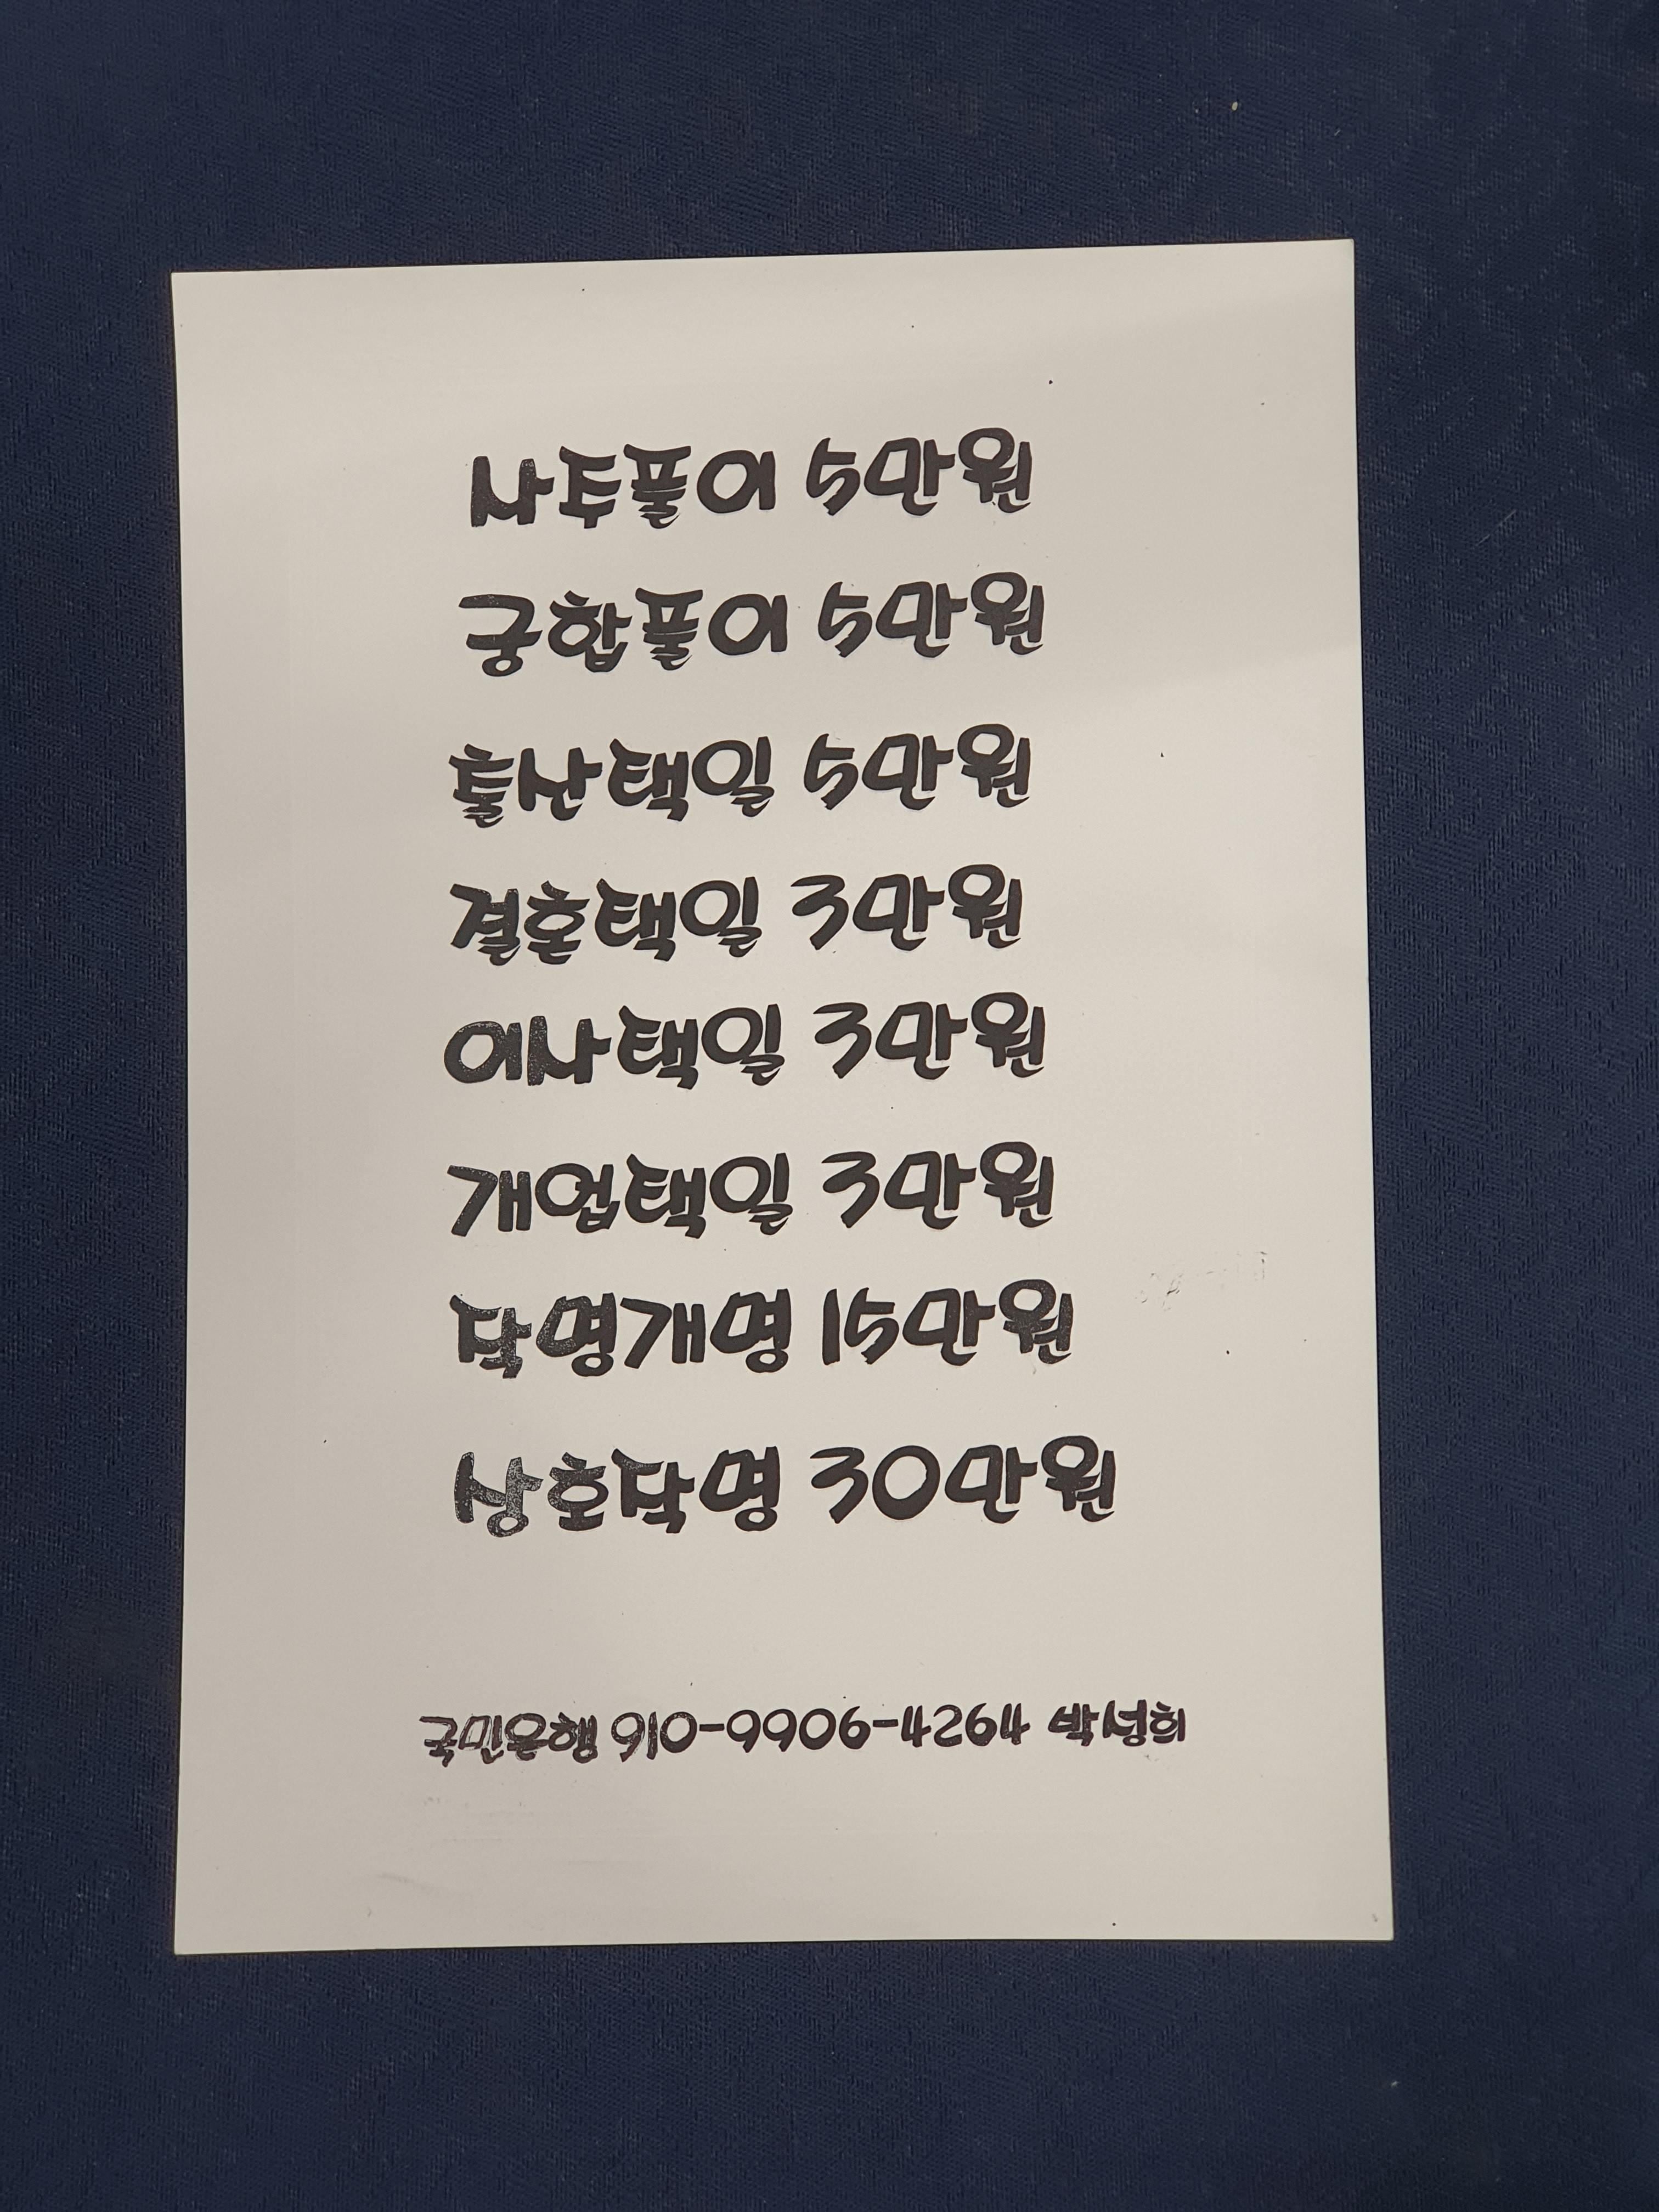 사주풀이 5만원
궁합풀이 5만원
출산택일 5만원
결혼택일 3만원
이사택일 3만원
개업택일 3만원
작명개명 15만원
상호작명 30만원
국민은행 910-9906-4264 박성희